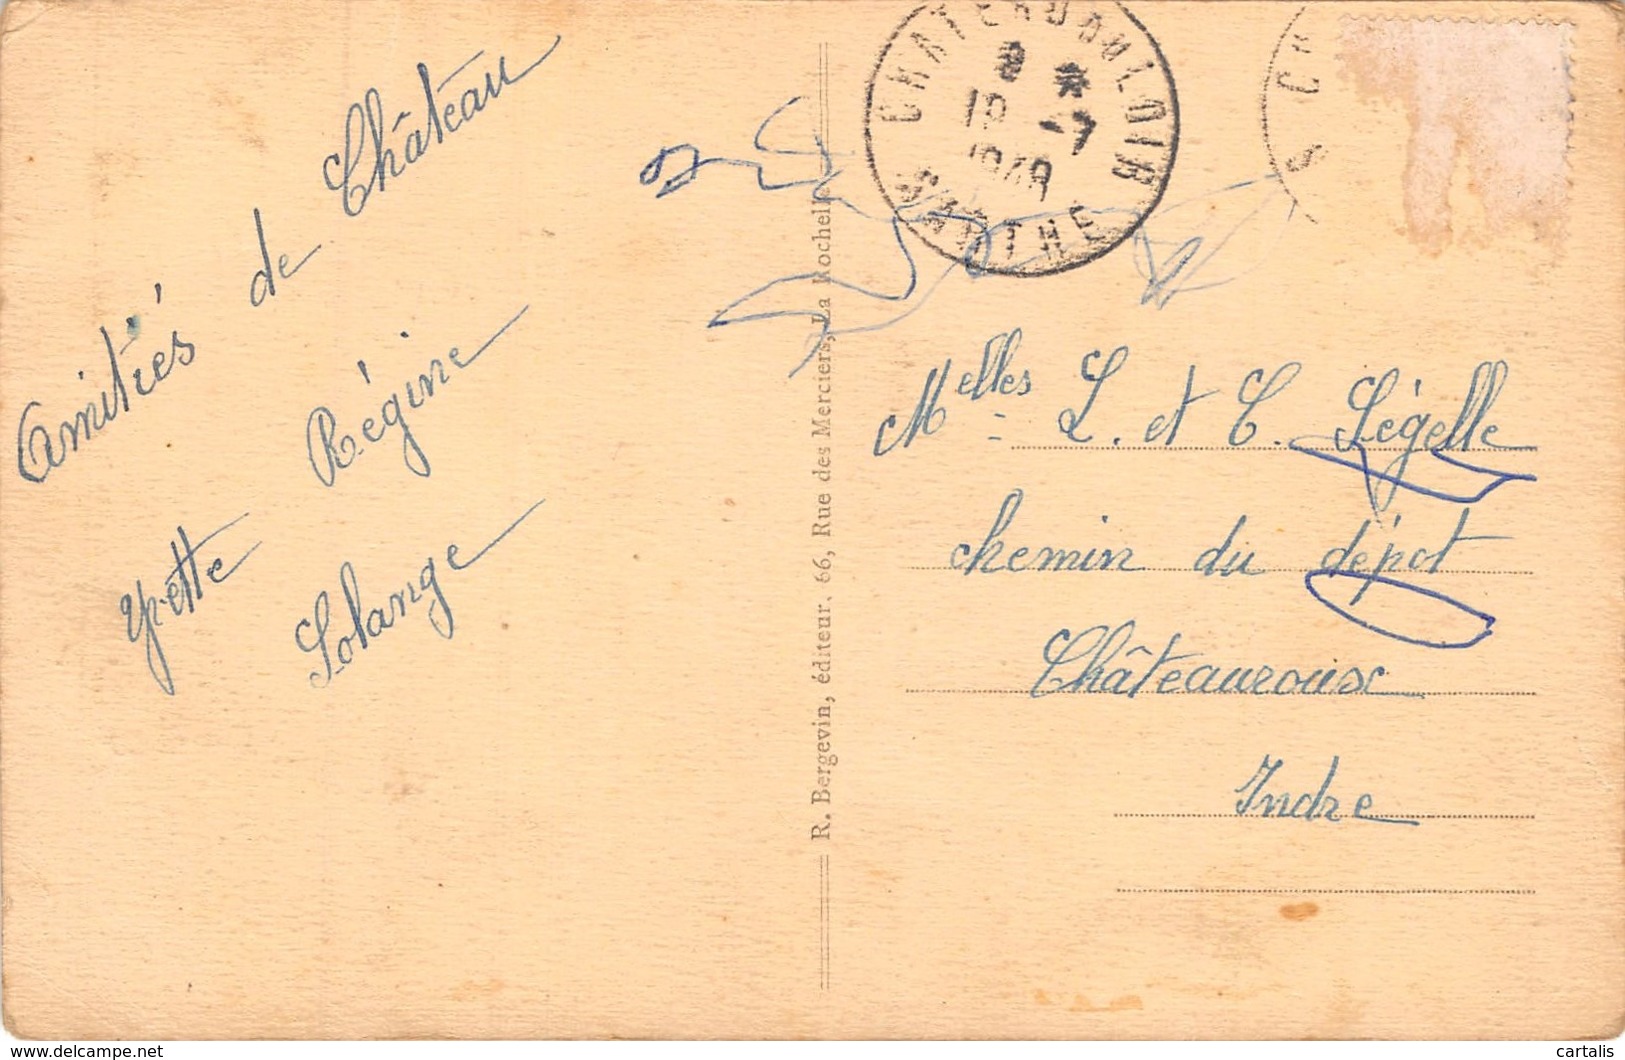 Amitiés de Château
Yvette Régine
Solange
R. Bergevin, éditeur, 66, Rue des Merciers, La Rochelle
CHATEAU DU LOIR
-7
SARTHE
CH
Melles L. et C. Légelle
chemin du dépot
Châteauroux
Indre
www.delcampe.net
cartalis